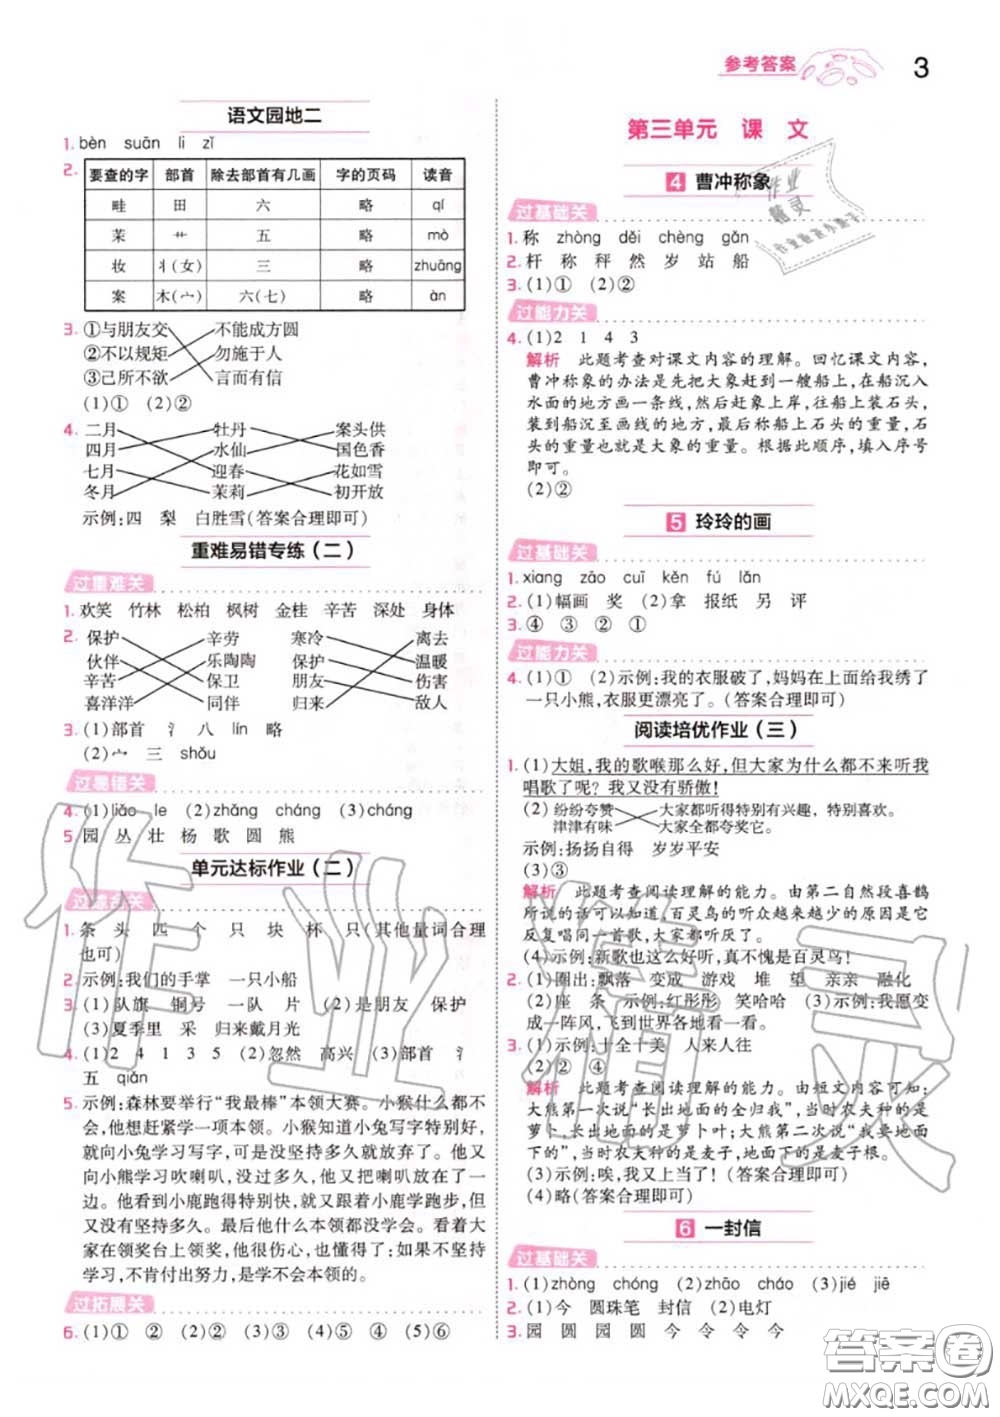 参考答案 3
语文园地二
1. bèn suān lì zǐ
2. 要查的字 部首 除去部首有几画 字的页码 读音
畦 田 六 略 qí
茉 艹 五 略 mò
妆 丬(女) 三 略 zhuāng
案 木(宀) 六(七) 略 àn
3. ①与朋友交 不能成方圆
②不以规矩 勿施于人
③己所不欲 言而有信
(1)① (2)②
4. 二月 牡丹 案头供
四月 水仙 国色香
七月 迎春 花如雪
冬月 茉莉 初开放
示例:四 梨 白胜雪(答案合理即可)
重难易错专练(二)
过重难关
1. 欢笑 竹林 松柏 枫树 金桂 辛苦 深处 身体
2. 保护 辛劳 寒冷 离去
伙伴 乐陶陶 保护 温暖
辛苦 保卫 朋友 伤害
喜洋洋 同伴 归来 敌人
3. (1)部首 氵 八 lín 略
(2)宀 三 shǒu
过易错关
4. (1)liǎo le (2)zhǎng cháng (3)cháng
5. 园 丛 壮 杨 歌 圆 熊
单元达标作业(二)
1. 条 头 四 个 只 块 杯 只(其他量词合理
也可)
2. 示例:我们的手掌 一只小船
3. (1)队旗 铜号 一队 片 (2)是朋友 保护
(3)夏季里 采 归来戴月光
4. (1)2 4 1 3 5 (2)忽然 高兴 (3)部首 氵
五 qiǎn
5. 示例:森林要举行“我最棒”本领大赛。小猴什么都不
会,他想赶紧学一项本领。小猴知道小兔写字特别好,
就向小兔学习写字,可是没坚持多久就放弃了。他又
向小熊学习吹喇叭,没过多久,他又把喇叭放在了一
边。他看到小鹿跑得特别快,就向小鹿学跑步,但又
没有坚持多久。最后他什么本领都没学会。看着大
家在领奖台上领奖,他伤心极了,也懂得了:如果不坚持
学习,不肯付出努力,是学不会本领的。
过拓展关
6. (1)① ② (2)② (3)① (4)⑤ ④ (5)⑥
第三单元 课 文
4 曹冲称象
过基础关
1. 称 zhòng děi chèng gǎn
2. 杆 称 秤 然 岁 站 船
3. (1)① (2)②
过能力关
4. (1)2 1 4 3
解析 此题考查对课文内容的理解。回忆课文内容,
曹冲称象的办法是先把大象赶到一艘船上,在船沉入
水面的地方画一条线,然后赶象上岸,往船上装石头,
装到船沉至画线的地方,最后称船上石头的重量,石
头的重量也就是大象的重量。根据此顺序,填入序号
即可。
(2)②
5 玲玲的画
过基础关
1. xiang zāo cuī kěn fú lǎn
2. (1)幅画 奖 (2)拿 报纸 另 评
3. ④ ③ ② ①
过能力关
4. (1)① (2)示例:我的衣服破了,妈妈在上面给我绣了
一只小熊,衣服更漂亮了。(答案合理即可)
阅读培优作业(三)
1. (1)大姐,我的歌喉那么好,但大家为什么都不来听我
唱歌了呢?我又没有骄傲!
(2)纷纷夸赞 大家都听得特别有兴趣,特别喜欢。
津津有味 大家全都夸奖它。
示例:扬扬自得 岁岁平安
(3)③
解析 此题考查阅读理解的能力。由第二自然段喜鹊
所说的话可以知道,百灵鸟的听众越来越少的原因是它
反复唱同一首歌,大家都听厌了。
(4)示例:新歌也这么好听,真不愧是百灵鸟!
2. (1)圈出:飘落 变成 游戏 堆 望 亲亲 融化
(2)座 条 示例:红彤彤 笑哈哈 (3)示例:我愿变
成一阵风,飞到世界各地看一看。
3. (1)示例:十全十美 人来人往
(2)② ④
解析 此题考查阅读理解的能力。由短文内容可知:
大熊第一次说“长出地面的全归我”,当时农夫种的是
萝卜,长出地面的是萝卜叶;大熊第二次说“我要地面
下的”,当时农夫种的是麦子,地面下的是麦子根。
(3)示例:唉,我又上当了!(答案合理即可)
(4)略(答案合理即可)
6 一封信
过基础关
1. (1)zhòng chóng (2)zhāo cháo (3)jié jiē
2. (1)今 圆珠笔 封信 (2)电灯
3. 园 圆 园 圆 今 令 令 今
作业精灵
答案圈
MXQE.COM